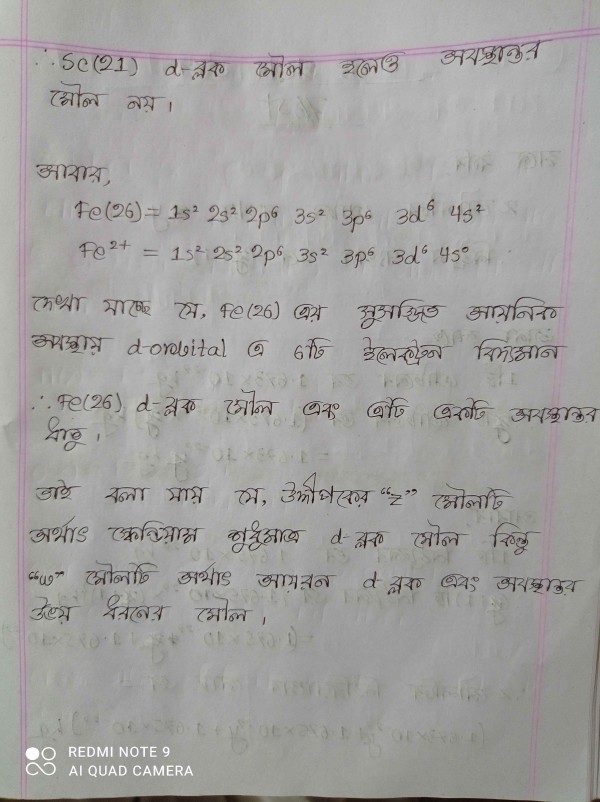 ∴ Sc(21) d-ব্লক মৌল হলেও অবস্থান্তর
মৌল নয়।
আবার,
Fe(26) = 1s² 2s² 2p⁶ 3s² 3p⁶ 3d⁶ 4s²
Fe²⁺ = 1s² 2s² 2p⁶ 3s² 3p⁶ 3d⁶ 4s⁰
দেখা যাচ্ছে যে, Fe(26) এর সুসজ্জিত আয়নিক
অবস্থায় d-orbital এ 6টি ইলেকট্রন বিদ্যমান
∴ Fe(26) d-ব্লক মৌল এবং এটি একটি অবস্থান্তর
ধাতু।
তাই বলা যায় যে, উদ্দীপকের "z" মৌলটি
অর্থাৎ স্কেন্ডিয়াম শুধুমাত্র d-ব্লক মৌল কিন্তু
"w" মৌলটি অর্থাৎ আয়রন d ব্লক এবং অবস্থান্তর
উভয় ধরনের মৌল।
REDMI NOTE 9
AI QUAD CAMERA